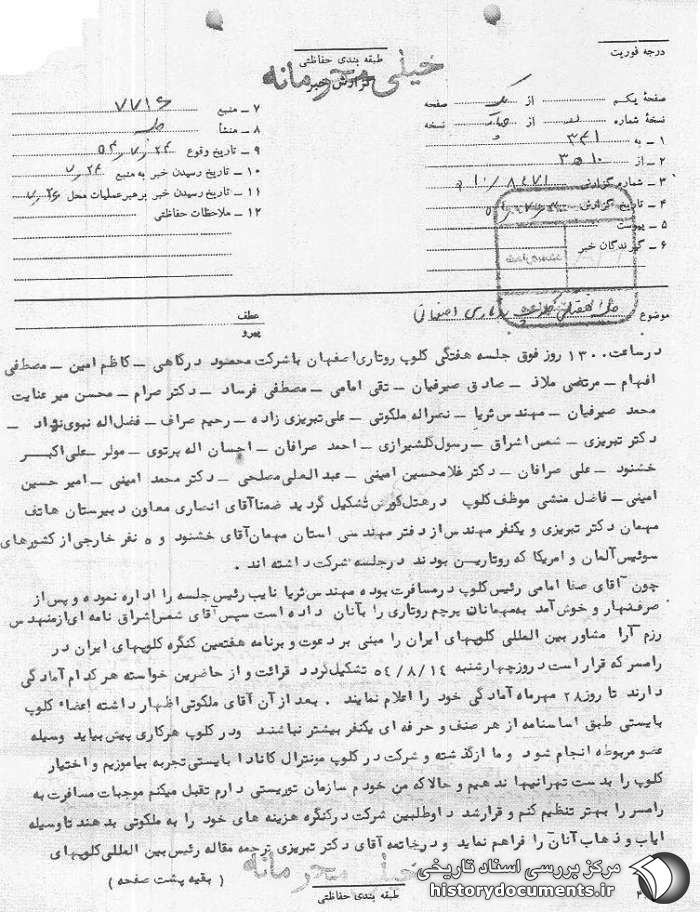 درجه فوریت
طبقه بندی حفاظتی
خیلی محرمانه
گزارش خبر
صفحه یکم از یک صفحه
نسخه شماره از نسخه
۱ ـ به ۳۴۱
۲ ـ از ۱۰ ه ۳
۳ ـ شماره گزارش ۱۰/۸۴۷۱ ه
۴ ـ تاریخ گزارش
۵ ـ پیوست
۶ ـ گیرندگان خبر
۷ ـ منبع ۷۷۱۶
۸ ـ منشأ
۹ ـ تاریخ وقوع ۵۴/۷/۲۴
۱۰ ـ تاریخ رسیدن خبر به منبع ۷/۲۴
۱۱ ـ تاریخ رسیدن خبر برهبر عملیات محل ۷/۲۶
۱۲ ـ ملاحظات حفاظتی
موضوع روتاری اصفهان
عطف
پیرو
در ساعت ۱۳۰۰ روز فوق جلسه هفتگی کلوپ روتاری اصفهان با شرکت محمود درگاهی ـ کاظم امین ـ مصطفی
افهام ـ مرتضی ملاذ ـ صادق صیرفیان ـ تقی امامی ـ مصطفی فرساد ـ دکتر صرام ـ محسن میر عنایت
محمد صیرفیان ـ مهندس ثریا ـ نصراله ملکوتی ـ علی تبریزی زاده ـ رحیم صراف ـ فضل اله نبوی نژاد ـ
دکتر تبریزی ـ شمس اشراق ـ رسول گلشیرازی ـ احمد صرافان ـ احسان اله پرتوی ـ مولر ـ علی اکبر
خشنود ـ علی صرافان ـ دکتر غلامحسین امینی ـ عبدالعلی مصلحی ـ دکتر محمد امینی ـ امیر حسین
امینی ـ فاضل منشی موظف کلوپ در هتل کورش تشکیل گردید ضمنا آقای انصاری معاون دبیرستان هاتف
مهمان دکتر تبریزی و یکنفر مهندس از دفتر مهندسی استان مهمان آقای خشنود و ۵ نفر خارجی از کشورهای
سوئیس آلمان و امریکا که روتارین بودند در جلسه شرکت داشته اند .
چون آقای صفا امامی رئیس کلوپ در مسافرت بوده مهندس ثریا نایب رئیس جلسه را اداره نموده و پس از
صرف نهار و خوش آمد به مهمانان پرچم روتاری را بآنان داده است سپس آقای شمس اشراق نامه ای از مهندس
رزم آرا مشاور بین المللی کلوپهای ایران را مبنی بر دعوت و برنامه هفتمین کنگره کلوپهای ایران در
رامسر که قرار است در روز چهارشنبه ۵۴/۸/۱۴ تشکیل گردد قرائت و از حاضرین خواسته هر کدام آمادگی
دارند تا روز ۲۸ مهرماه آمادگی خود را اعلام نمایند . بعد از آن آقای ملکوتی اظهار داشته اعضاء کلوپ
بایستی طبق اساسنامه از هر صنف و حرفه ای یکنفر بیشتر نباشند و در کلوپ هر کاری پیش بیاید وسیله
عضو مربوطه انجام شود و ما از گذشته و شرکت در کلوپ مونترال کانادا بایستی تجربه بیاموزیم و اختیار
کلوپ را بدست تهرانیها ندهیم و حالا که من خودم سازمان توریستی دارم تقبل میکنم موجبات مسافرت به
رامسر را بهتر تنظیم کنم و قرار شد داوطلبین شرکت در کنگره هزینه های خود را به ملکوتی بدهند تا وسیله
ایاب و ذهاب آنان را فراهم نماید و در خاتمه آقای دکتر تبریزی ترجمه مقاله رئیس بین المللی کلوپهای
( بقیه پشت صفحه )
خیلی محرمانه
طبقه بندی حفاظتی
مرکز بررسی اسناد تاریخی
historydocuments.ir